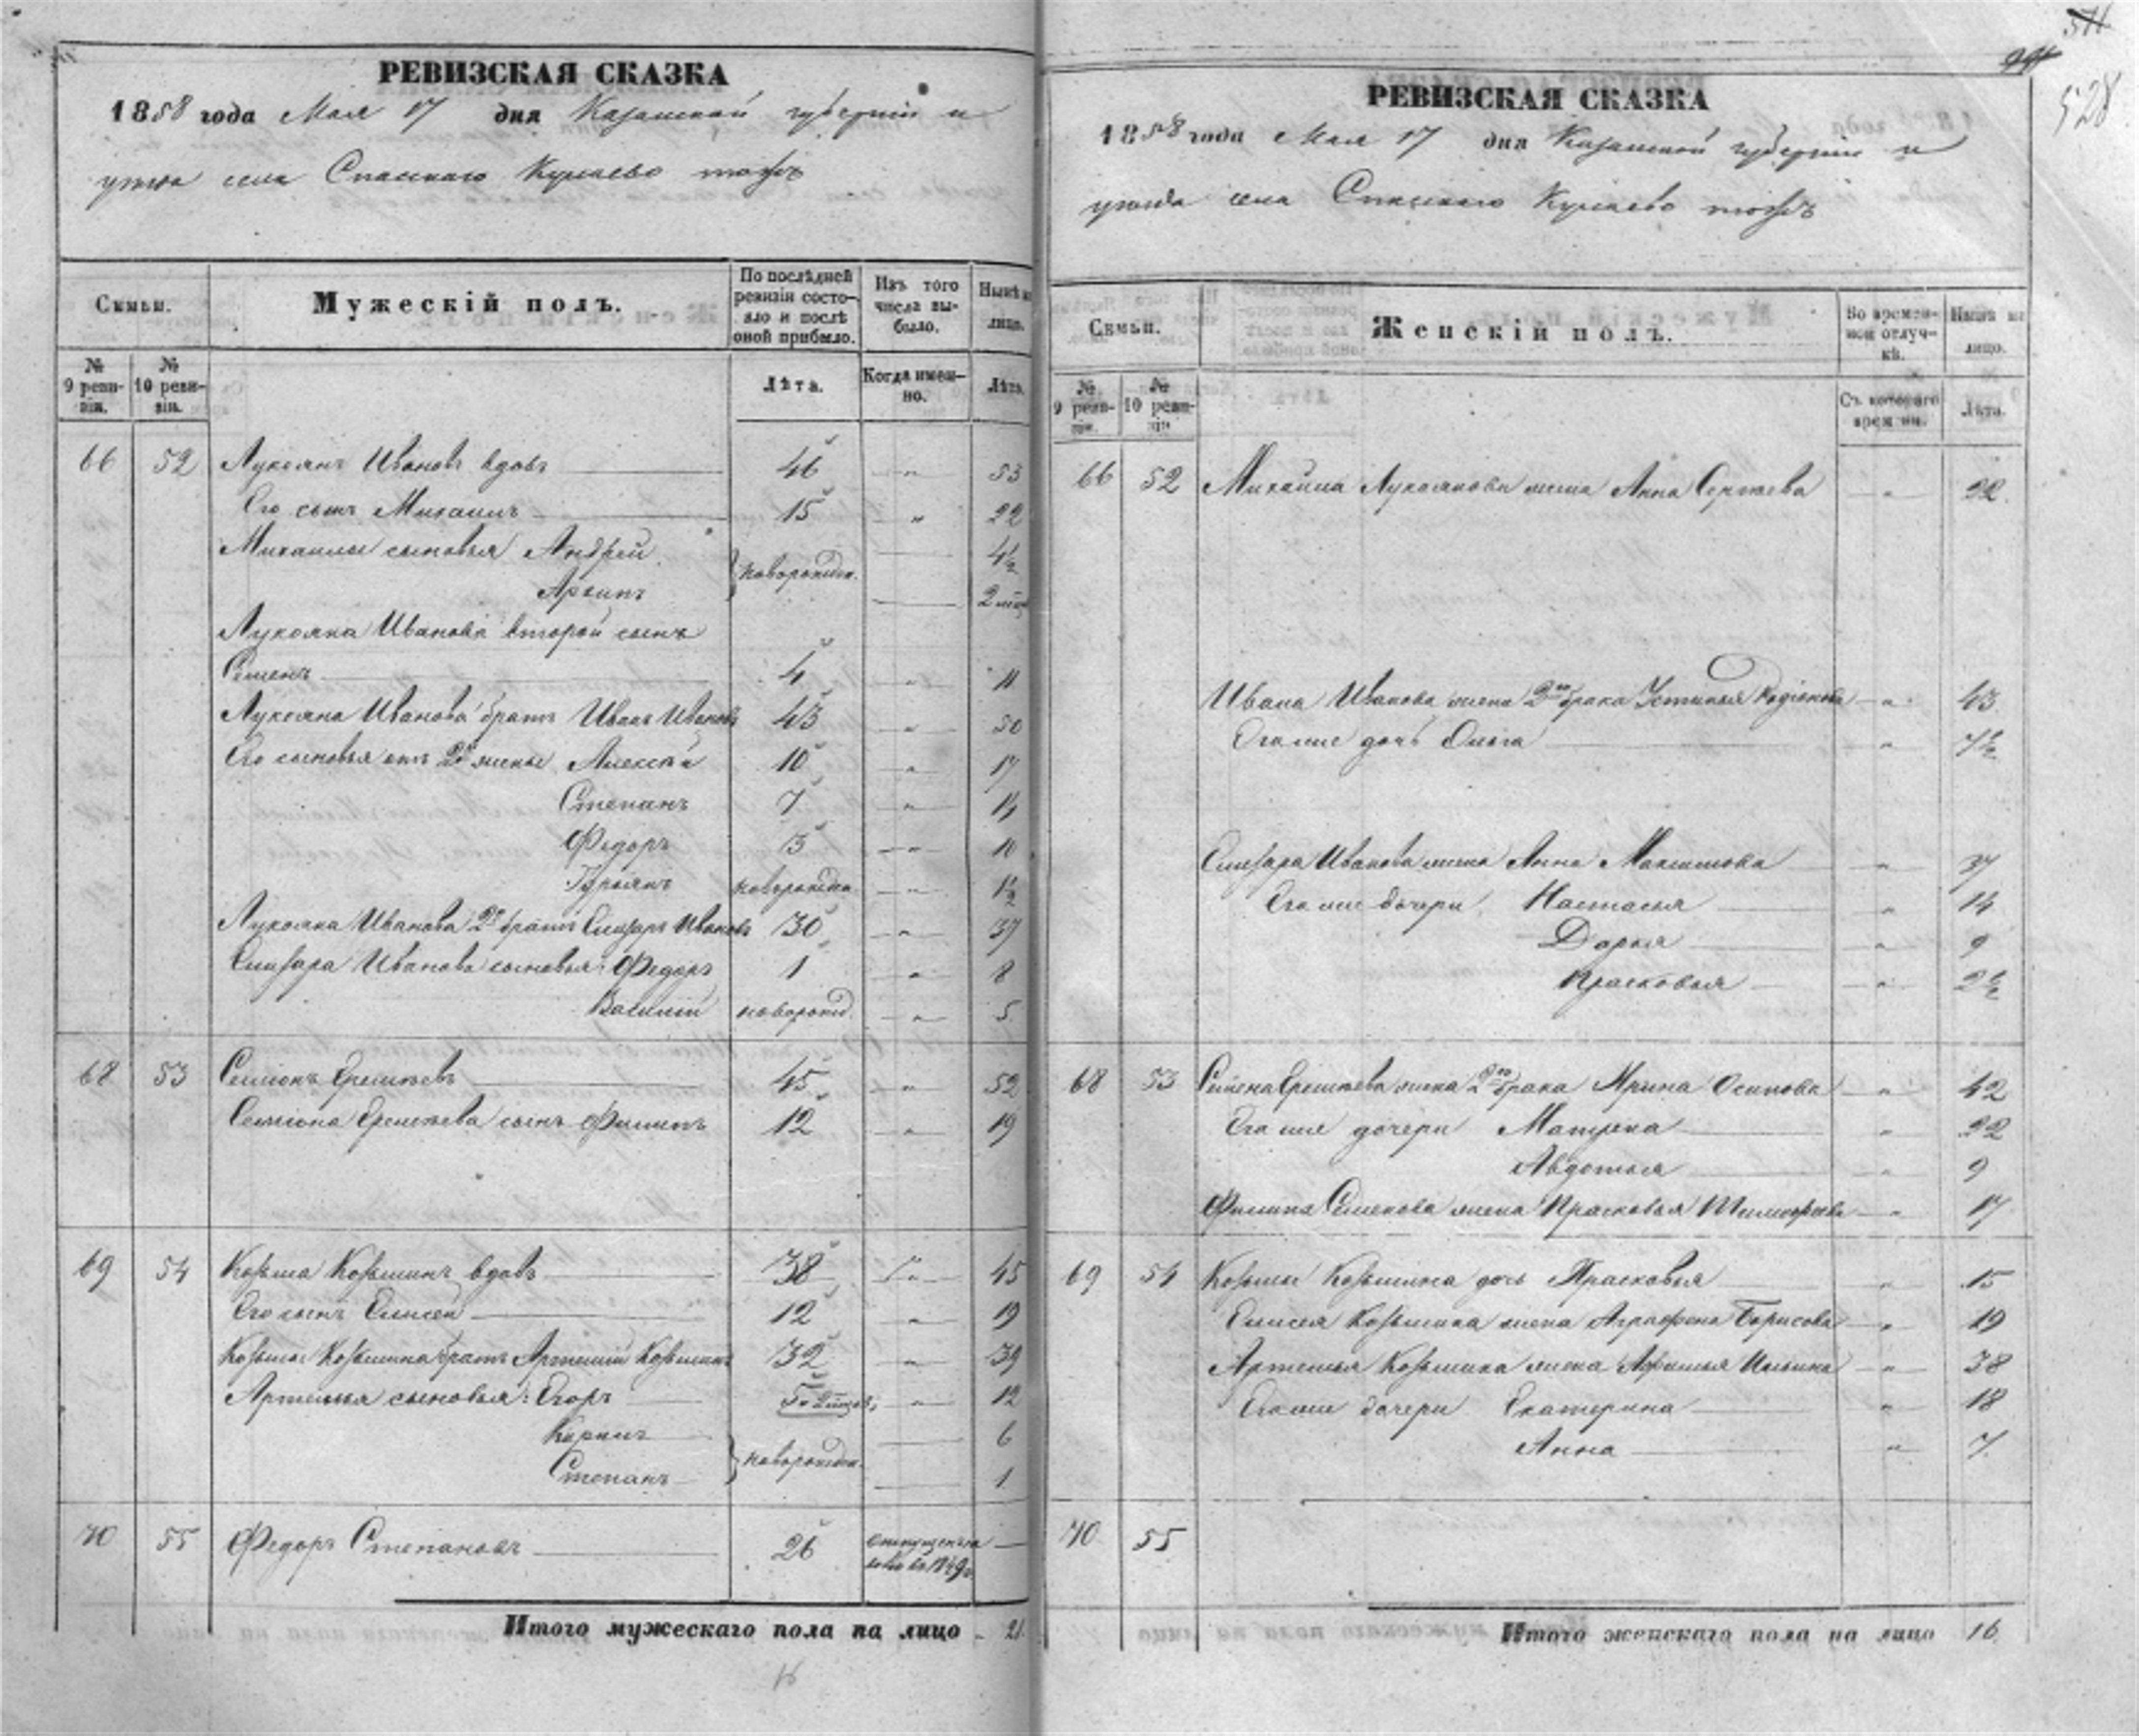 РЕВИЗСКАЯ СКАЗКА
1858 года Мая 17 дня Казанской губернiи и
уезда села Спаскаго Кулаево тожъ
Семьи.
Мужескiй полъ.
По послѣдней ревизiи состо-
яло и послѣ
оной прибыло.
Изъ того
числа вы-
было.
Нынѣ на
лицо.
№
9 реви-
зiи.
№
10 реви-
зiи.
Лѣта.
Когда имен-
но.
Лѣта.
66 52 Лукоянъ Ивановъ вдовъ 46 " 53
Его сынъ Михаилъ 15 " 22
Михаилы сыновья Андрей 4½
новорожден.
Архипъ 2
Лукояна Иванова второй сынъ
Семенъ 4 " 11
Лукояна Иванова братъ Иванъ Ивановъ 43 " 50
Его сыновья отъ 2й жены Алексѣй 10 " 17
Степанъ 7 " 14
Федоръ 3 " 10
Гурьянъ новорожден " 1½
Лукояна Иванова 2й братъ Елизаръ Ивановъ 30 " 37
Елизара Иванова сыновья: Федоръ 1 " 8
Василiй новорожд. " 5
68 53 Семiонъ Еремѣевъ 45 " 52
Семiона Еремѣева сынъ Филипъ 12 " 19
69 54 Козьма Козьминъ вдовъ 38 " 45
Его сынъ Елисей 12 " 19
Козьмы Козьмина братъ Артемiй Козьминъ 32 " 39
Артемья сыновья: Егоръ 5 " 12
Карпъ 6
новорожден.
Степанъ 1
70 55 Федоръ Степановъ 26 отпущенъ на
волю въ 1849 г.
Итого мужескаго пола на лицо 21.
16
511
528
РЕВИЗСКАЯ СКАЗКА
1858 года Мая 17 дня Казанской губернiи и
уезда села Спаскаго Кулаево тожъ
Семьи.
Женскiй полъ.
Во времен-
ной отлуч-
кѣ.
Нынѣ на
лицо.
№
9 реви-
зiи.
№
10 реви-
зiи
Съ котораго
времени.
Лѣта.
66 52 Михайла Лукоянова жена Анна Сергѣева " 22.
Ивана Иванова жена 2го брака Устинья Родiонова " 43
Его же дочь Ольга " 7½
Елизара Иванова жена Анна Максимова " 37
Его же дочери Настасья " 14
Дарья " 9
Прасковья " 2½
68 53 Семена Еремѣева жена 2го брака Арина Осипова " 42
Его же дочери Матрена " 22
Авдотья " 9
Филипа Семенова жена Прасковья Тимофеева " 17
69 54 Козьмы Козьмина дочь Прасковья " 15
Елисея Козьмина жена Аграфена Борисова " 19
Артемья Козьмина жена Афимья Ильина " 38
Его же дочери Екатерина " 18
Анна " 7.
70 55
Итого женскаго пола на лицо 16